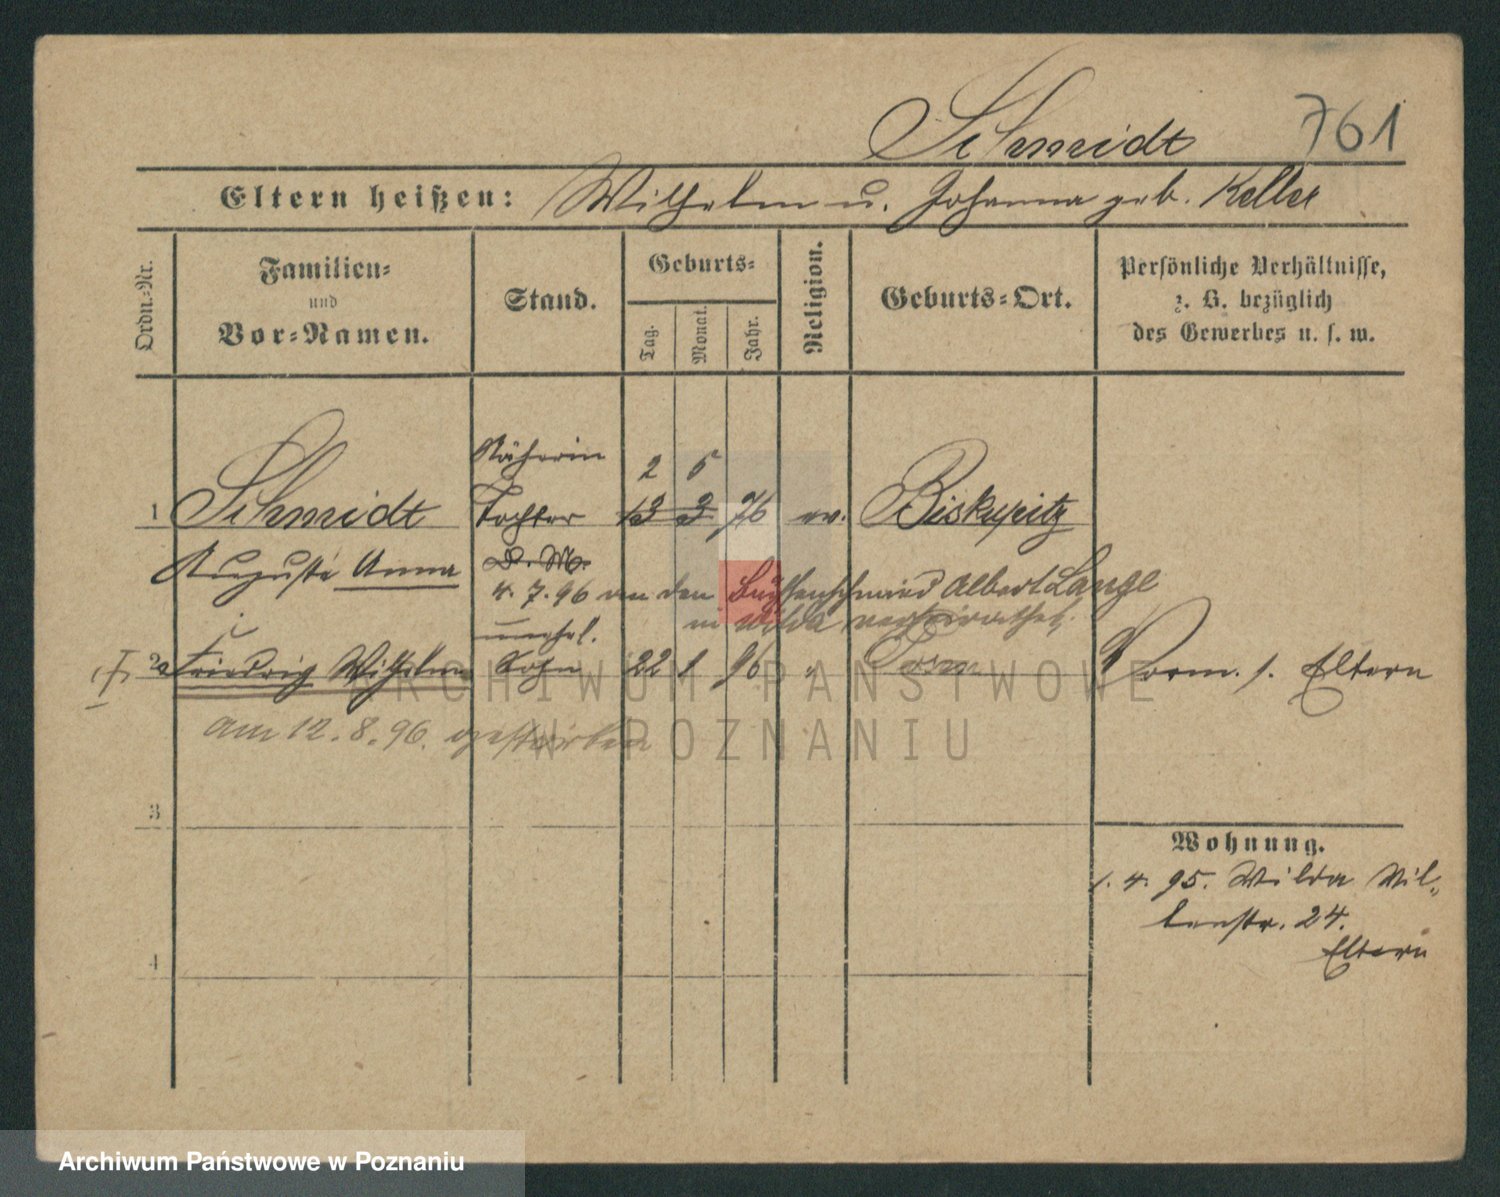 Schmidt 761
Eltern heißen: Wilhelm u. Johanna geb. Keller
Ordn.-Nr.
Familien-
und
Vor-Namen.
Stand.
Geburts-
Tag.
Monat.
Jahr.
Religion.
Geburts-Ort.
Persönliche Verhältnisse,
z. B. bezüglich
des Gewerbes u. s. w.
Näherin 2 5
1 Schmidt Tochter 13 3 76 ev. Biskupitz
Auguste Anna D. M.
4. 7. 96 an den Büchsenschmied Albert Lange
in Wilda verheirathet.
unehel.
2a Friedrich Wilhelm Sohn 22 1 96 " Posen Vorm. s. Eltern
am 12. 8. 96. gestorben
3
4
Wohnung.
1. 4. 95. Wilda Wil-
lenstr. 24.
Eltern
ARCHIWUM PAŃSTWOWE
W POZNANIU
Archiwum Państwowe w Poznaniu